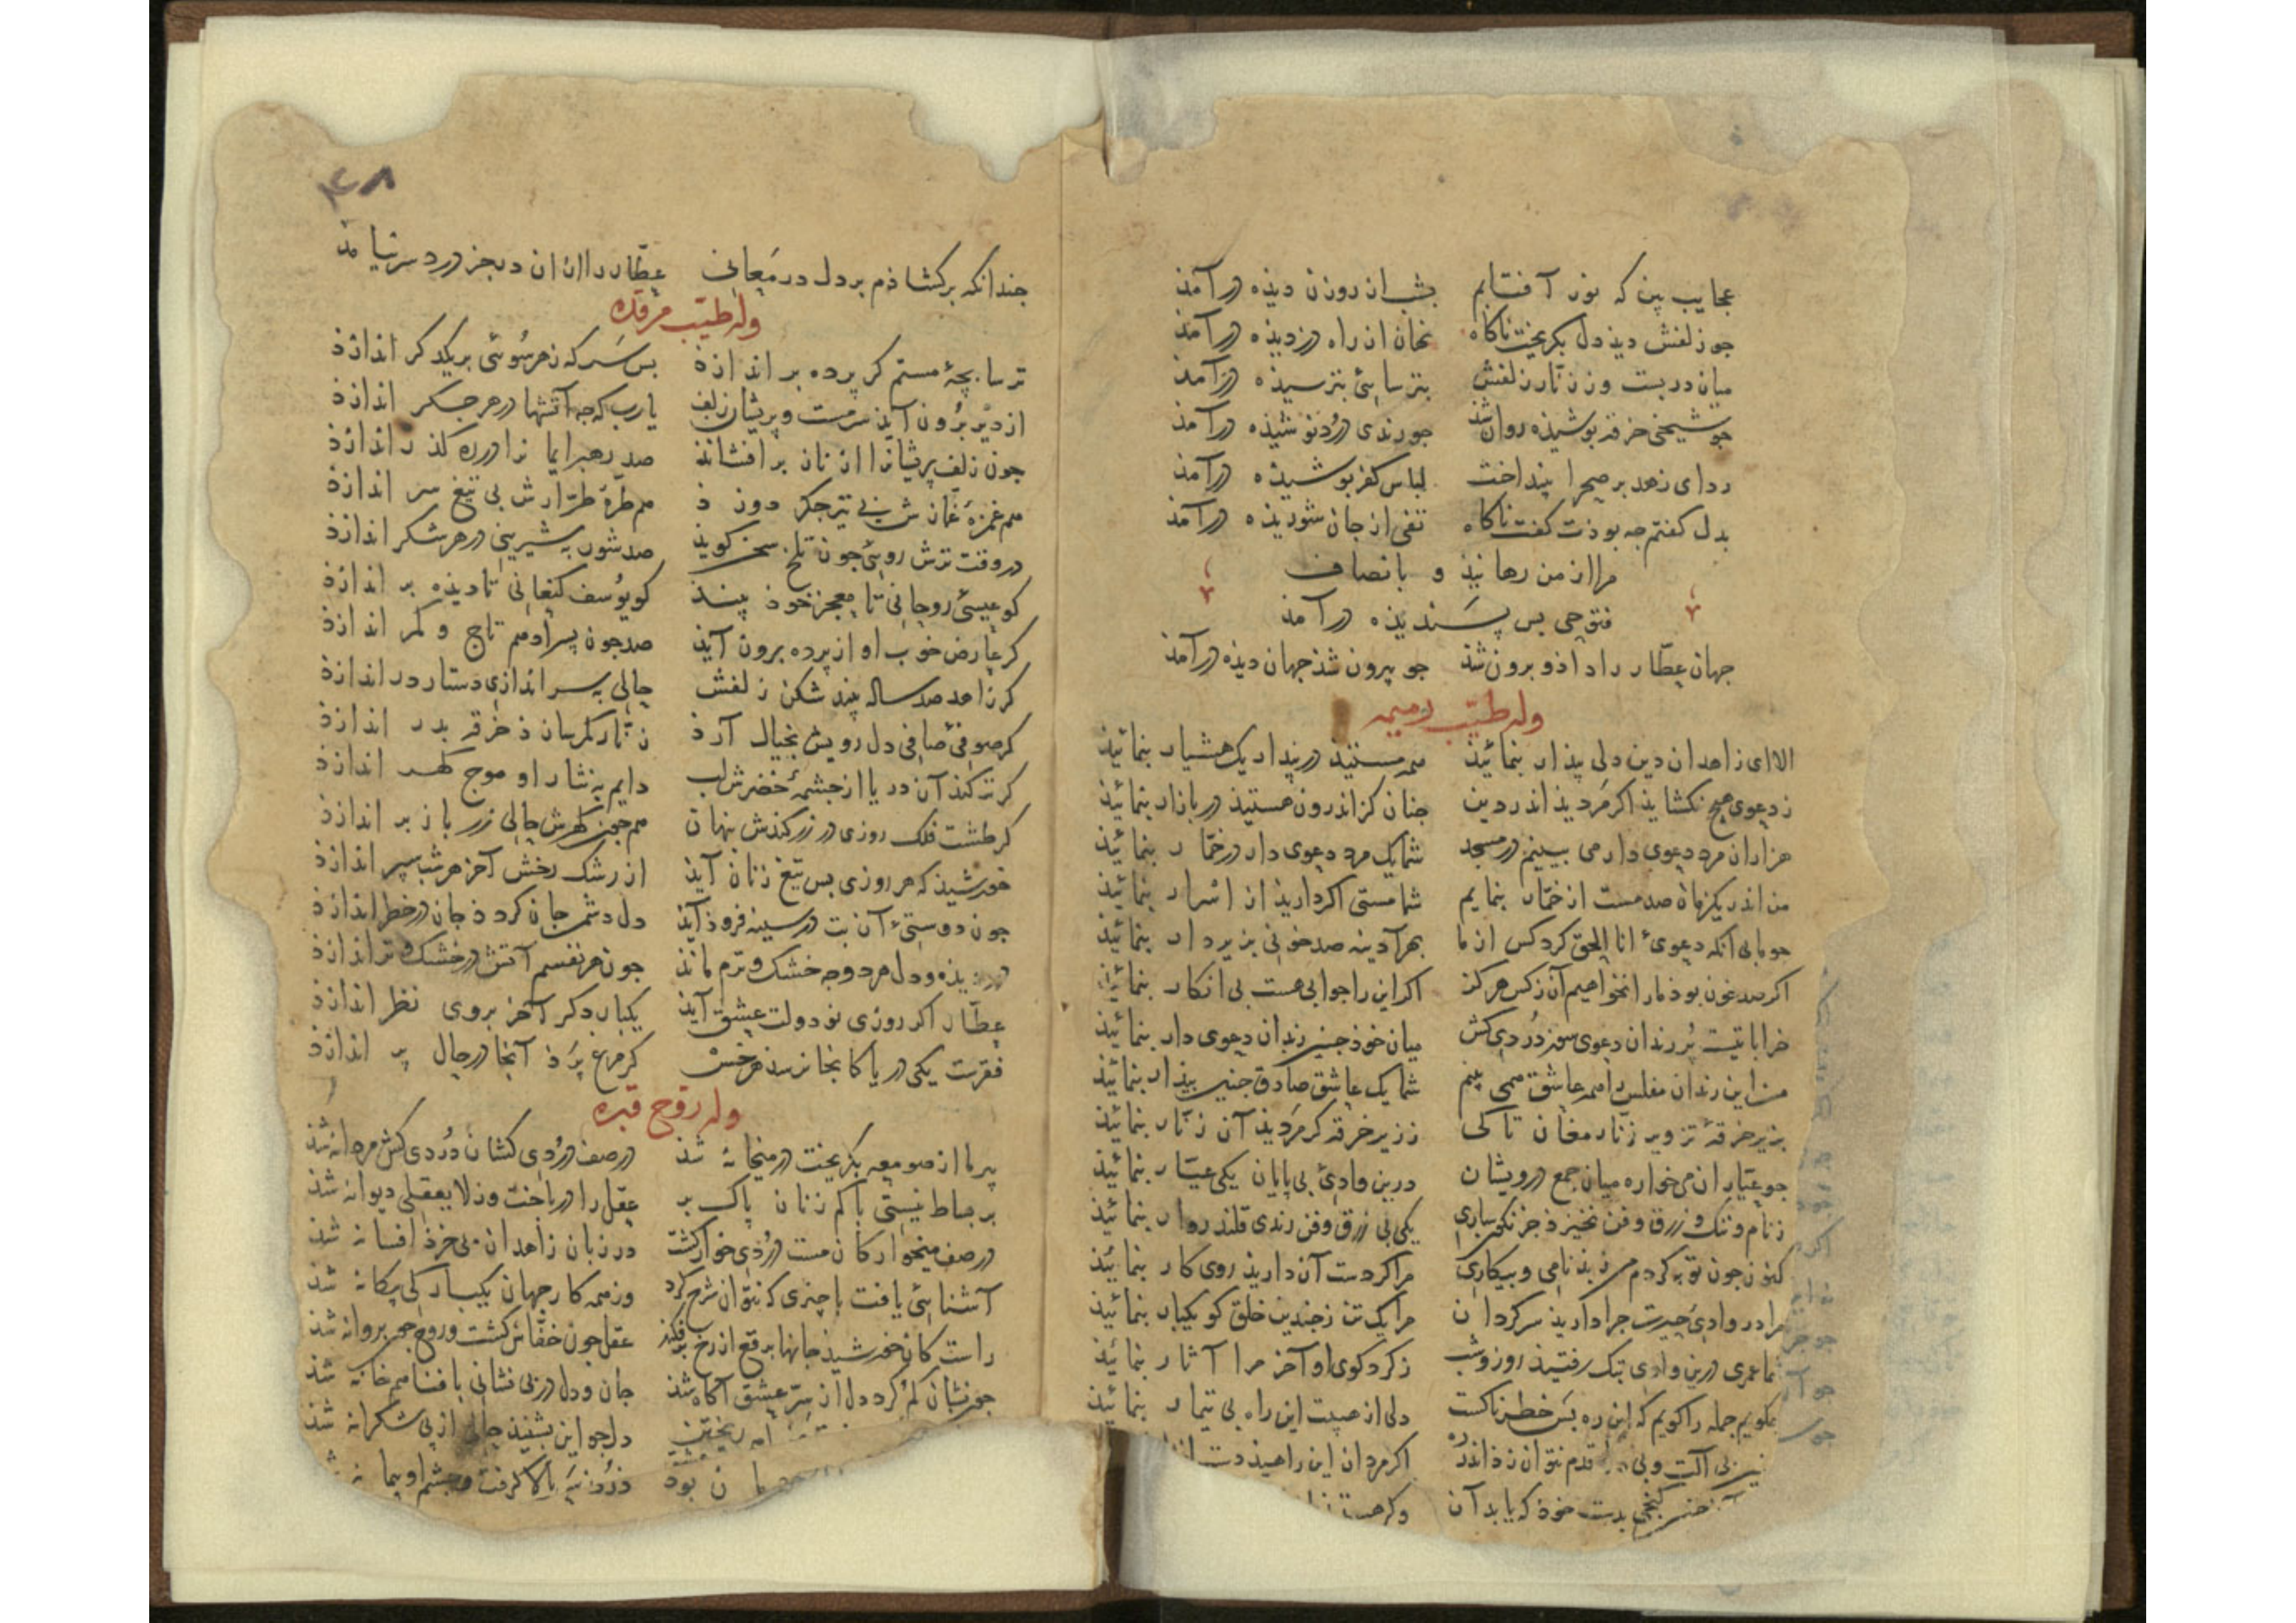 عجایب بین که نور آفتابم بشب از روزن دیذه درآمذ
جو زلفش دیذ دل بکریخت ناکاه نهان از راه دزدیذه درآمذ
میان دربست وز زنار زلفش بترسایی بترسیذه درآمذ
جو شیخی خرقه بوشیذه روان شذ جو رندی درد نوشیذه درآمذ
ردای زهد بر صحرا بینداخت لباس کفر بوشیذه درآمذ
بدل کفتم جه بوذت کفت ناکاه تفی از جان شوریذه درآمذ
مرا از من رهانیذ و بانصاف
فتوحی بس پسندیذه درآمذ
جهان عطار را داذ و برون شذ جو بیرون شذ جهان دیذه درآمذ
وله طیب رمیمه
الا ای زاهدان دین دلی بیذار بنمائیذ همه مستیذ در پندار یک هشیار بنمائیذ
ز دعوی هیج نکشایذ اکر مردیذ اندر دین جنان کز اندرون هستیذ در بازار بنمائیذ
هزاران مرد دعوی دار می بینیم در مسجد شما یک مرد دعوی دار در خمار بنمائیذ
من اندر یک زمان صد مست از خمار بنمایم شما مستی اکر داریذ از اسرار بنمائیذ
جو ما بی آنکه دعوی انا الحق کرد کس از ما بهر آدینه صد خونی بزیر دار بنمائیذ
اکر صد خون بوذ ما را نخواهیم آن ز کس هرکز اکر این را جوابی هست بی انکار بنمائیذ
خراباتیست پر رندان دعوی سوز دردی کش میان خوذ جنین رندان دعوی دار بنمائیذ
من این رندان مفلس را همه عاشق همی بینم شما یک عاشق صادق جنین بیذار بنمائیذ
بزیر خرقه تزویر زنار مغان تا کی ز زیر خرقه کر مردیذ آن زنار بنمائیذ
جو عیاران می خواره میان جمع درویشان درین وادی بی پایان یکی عیار بنمائیذ
ز نام و ننک و زرق و فن نخیزذ جز نکونساری یکی بی زرق و فن رندی قلندروار بنمائیذ
کنون جون توبه کردم من ز بذنامی و بیکاری مرا کر دست آن داریذ روی کار بنمائیذ
مرا در وادی حیرت جرا داریذ سرکردان مرا یک تن ز جندین خلق کو یکبار بنمائیذ
شما عمری درین وادی بتک رفتیذ روز و شب ز کرد کوی او آخر مرا آثار بنمائیذ
بکویم جمله را کویم که این ره بس خطرناکست دلی از هیبت این راه بی تیمار بنمائیذ
قدم نتوان زذ اندر ره اکر مردان این راهیذ دست
کنجی بدست خوذ که یابد آن وکر هست
۴۸
جندانکه برکشاذم بر دل در معانی عطار را از ان در بجز درد سر نیامذ
وله طیب مرقده
ترسا بچه مستم کر پرده بر اندازذ بس سر که ز هر سوئی بر یکدکر اندازذ
از دیر برون آیذ سرمست و پریشان زلف یا رب که جه آتشها در هر جکر اندازذ
جون زلف پریشانرا از نار برافشانذ صد رهبر ایمانرا در ره کذر اندازذ
هم غمزه غمازش بی تیر جکر دوزذ هم طره طرارش بی تیغ سر اندازذ
در وقت ترش روئی جون تلخ سخن کویذ صد شور به شیرینی در هر شکر اندازذ
کو عیسی روحانی تا معجز خوذ بینذ کو یوسف کنعانی تا دیذه بر اندازذ
کر عارض خوب او از پرده برون آیذ صد جون پسر ادهم تاج و کمر اندازذ
کر زاهد صد ساله بیند شکن زلفش حالی به سر اندازی دستار در اندازذ
کر صوفی صافی دل رویش بخیال آرذ زنار کمر سازذ خرقه بدر اندازذ
کر تر کنذ آن دریا از جشمه خضرش لب دایم به نثار او موج کهر اندازذ
کر طشت فلک روزی در زر کندش پنهان هم جون کهرش حالی زر باز بر اندازذ
خورشیذ که هر روزی بس تیغ زنان آیذ از رشک رخش آخر هر شب سپر اندازذ
جون دوستی آن بت در سینه فروذ آیذ دل دشمن جان کردذ جان در خطر اندازذ
در دیذه و دل هر دو جه خشک و ترم مانذ جون هر نفسم آتش در خشک و تر اندازذ
عطار اکر روزی نو دولت عشق آیذ یکبار دکر آخر بروی نظر اندازذ
فقرست یکی دریا کانجا نرسذ هر خس کر مرغ پرذ آنجا در حال پر اندازذ
وله روح قبره
پیر ما از صومعه بکریخت در میخانه شذ در صف دردی کشان دردی کش مردانه شذ
بر بساط نیستی با کم زنان پاک بر عقل را درباخت وز لایعقلی دیوانه شذ
در صف میخوارکان مست دردی خوار کشت در زبان زاهدان بی خرذ افسانه شذ
آشنایی یافت با چیزی که نتوان شرح کرد وز همه کار جهان یکبارکی بیکانه شذ
راست کان خورشیذ جانها برقع از رخ برفکند عقل جون خفاش کشت و روح جون پروانه شذ
جون نشان کم کرد دل از سر عشق آکاه شذ جان و دل در بی نشانی با فنا هم خانه شذ
دل جو این بشنیذ حالی از پی شکرانه شذ